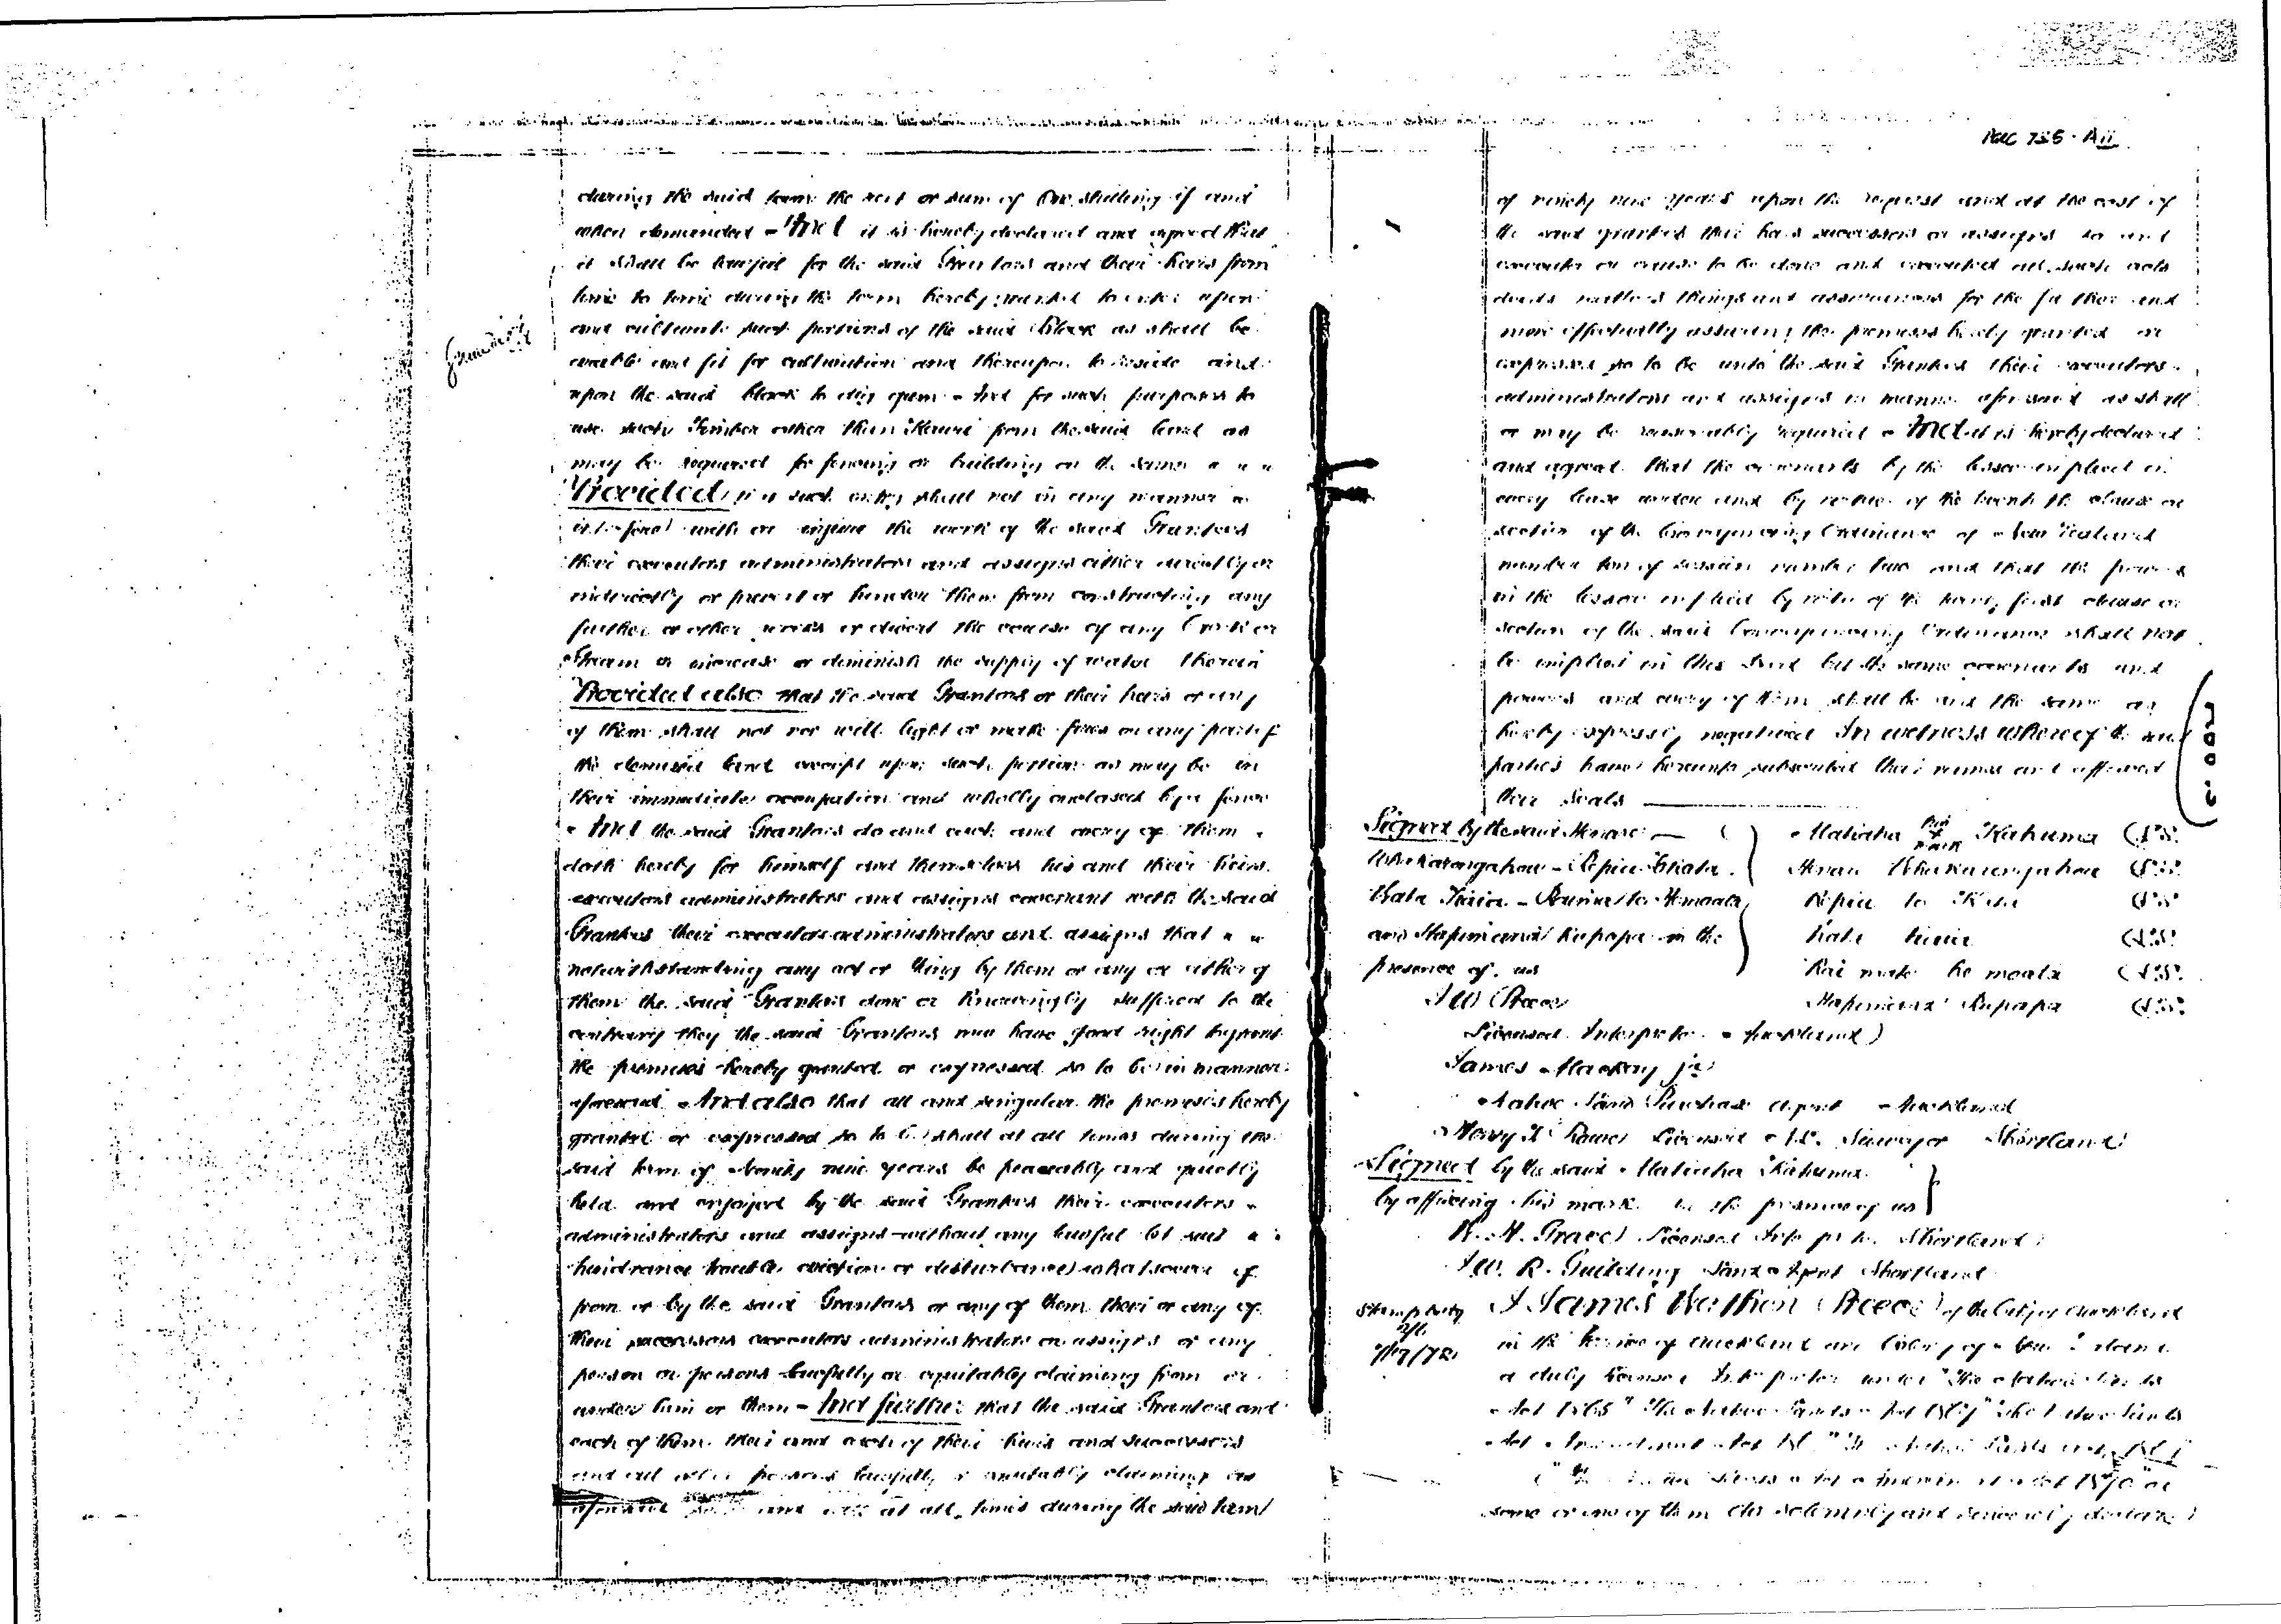 during the said term the rent or sum of One shilling if and
when demanded And it is hereby declared and agreed that
it shall be lawful for the said Grantors and their heirs from
time to time during the term hereby granted to enter upon
and cultivate such portions of the said Block as shall be
arable and fit for cultivation and thereupon to reside and
upon the said block to dig gum And for such purposes to
use such Timber other than Kauri from the said land as
may be required for fencing or building on the same
Provided such entry shall not in any manner
interfere with or injure the work of the said Grantees
their executors administrators and assigns either directly or
indirectly or prevent or hinder them from constructing any
further or other works or divert the course of any Creek or
Stream or increase or diminish the supply of water therein
Provided also that the said Grantors or their heirs or any
of them shall not nor will light or make fires on any part of
the demised land except upon such portion as may be in
their immediate occupation and wholly enclosed by a fence
And the said Grantors do and each and every of them
doth hereby for himself and themselves his and their heirs
executors administrators and assigns covenant with the said
Grantees their executors administrators and assigns that
notwithstanding any act or thing by them or any or either of
them the said Grantors done or knowingly suffered to the
contrary they the said Grantors now have good right to grant
the premises hereby granted or expressed so to be in manner
aforesaid And also that all and singular the premises hereby
granted or expressed so to be shall at all times during the
said term of ninety nine years be peaceably and quietly
held and enjoyed by the said Grantees their executors
administrators and assigns without any lawful let suit
hindrance trouble eviction or disturbance whatsoever of
from or by the said Grantors or any of them their or any of
their successors executors administrators or assigns or any
person or persons lawfully or equitably claiming from or
under him or them And further that the said Grantors and
each of them their and each of their heirs and successors
and all other persons lawfully or equitably claiming as
aforesaid and will at all times during the said term
Rec 735 · A11
of ninety nine years upon the request and at the cost of
the said grantees their heirs successors or assigns do and
execute or cause to be done and executed all such acts
deeds matters things and assurances for the further and
more effectually assuring the premises hereby granted or
expressed so to be unto the said Grantees their executors
administrators and assigns in manner aforesaid as shall
or may be reasonably required And it is hereby declared
and agreed that the covenants by the lessor implied in
every lease under and by virtue of the clause or
section of the Conveyancing Ordinance of New Zealand
number ten of session number two and that the powers
in the lessor implied by virtue of the first clause or
section of the said Conveyancing Ordinance shall not
be implied in this deed but the same covenants and
powers and every of them shall be and the same are
hereby expressly negatived In witness whereof the said
parties have hereunto subscribed their names and affixed
their seals
Signed by the said Meraai
Whakarongahau Repiu
Hata and Hapimana Rupapa in the
presence of us
J W Preece
Licensed Interpreter Auckland
James Mackay jr
Native Land Purchase agent Auckland
Licensed Surveyor Shortland
Matiaha his X mark Kahuma (L.S.
Whakarongahau (L.S.
Repiu te (L.S.
Hata (L.S.
(L.S.
Hapimana Rupapa (L.S.
Signed by the said Matiaha Kahuma
by affixing his mark in the presence of us
Licensed Interpreter Shortland
R. Guilding Land Agent Shortland
Stamp duty
I James Wathen Preece of the City of Auckland
in the Province of Auckland and Colony of New Zealand
a duly licensed Interpreter under "The Native Lands
Act 1865" "The Native Lands Act 1867"
Act Amendment Act "The Native Lands Act
Act Amendment Act 1870" or
some or one of them do solemnly and sincerely declare